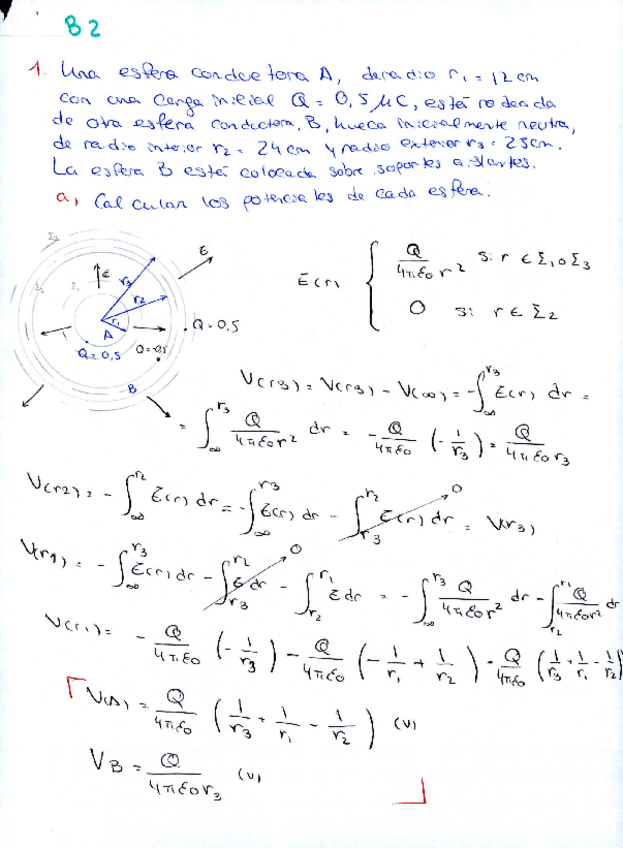 B2
1. Una esfera conductora A, de radio r₁ = 12 cm
con una carga inicial Q = 0,5 μC, está rodeada
de otra esfera conductora, B, hueca inicialmente neutra,
de radio interior r₂ = 24 cm y radio exterior r₃ = 25 cm.
La esfera B está colocada sobre soportes aislantes.
a) Calcular los potenciales de cada esfera.
Σ₃ Σ₂ Σ₁ E r₃ r₂ r₁ A B E
Q = 0,5 Q = 0,5 Q = -0,5
E(r) { Q/4πε₀r² si r ∈ Σ₁ o Σ₃
0 si r ∈ Σ₂
V(r₃) = V(r₃) - V(∞) = -∫_∞^r₃ E(r) dr =
= ∫_∞^r₃ Q/4πε₀r² dr = -Q/4πε₀ (-1/r₃) = Q/4πε₀r₃
V(r₂) = -∫_∞^r₂ E(r) dr = -∫_∞^r₃ E(r) dr - ∫_r₃^r₂ E(r) dr → 0 = V(r₃)
V(r₁) = -∫_∞^r₃ E(r) dr - ∫_r₃^r₂ E dr → 0 - ∫_r₂^r₁ E dr = -∫_∞^r₃ Q/4πε₀r² dr - ∫_r₂^r₁ Q/4πε₀r² dr
V(r₁) = -Q/4πε₀ (-1/r₃) - Q/4πε₀ (-1/r₁ + 1/r₂) = Q/4πε₀ (1/r₃ + 1/r₁ - 1/r₂)
V(A) = Q/4πε₀ (1/r₃ + 1/r₁ - 1/r₂) (V)
V_B = Q/4πε₀r₃ (V)